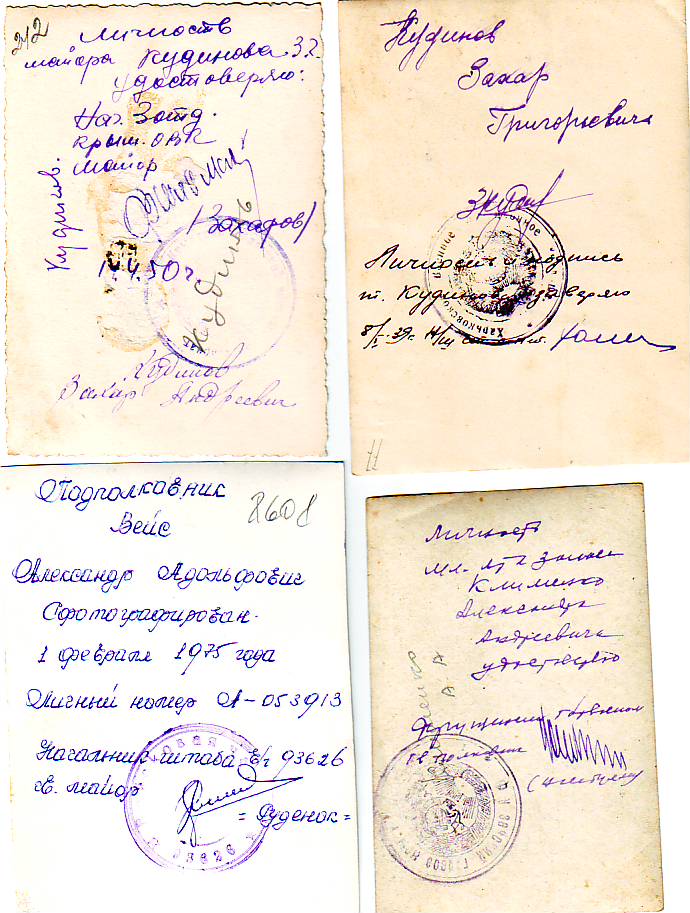 212
Личность
майора Кудинова З.
удостоверяю:
Нач. 3 отд.
Крым. ОВК
майор
/Захаров/
Кудинов.
50 г.
Кудинов
Кудинов
Захар Андреевич
Кудинов
Захар
Григорьевич
Личность и подпись
т. Кудинова заверяю
Харьковско
Подполковник
Вейс
8608
Александр Адольфович
Сфотографирован
1 февраля 1975 года
Личный номер А-053913
Начальник штаба в/ч 93626
г. майор
=Руденок=
93626
Личность
мл. л-та запаса
Клименко
Александра
Андреевича
удостоверяю
А А